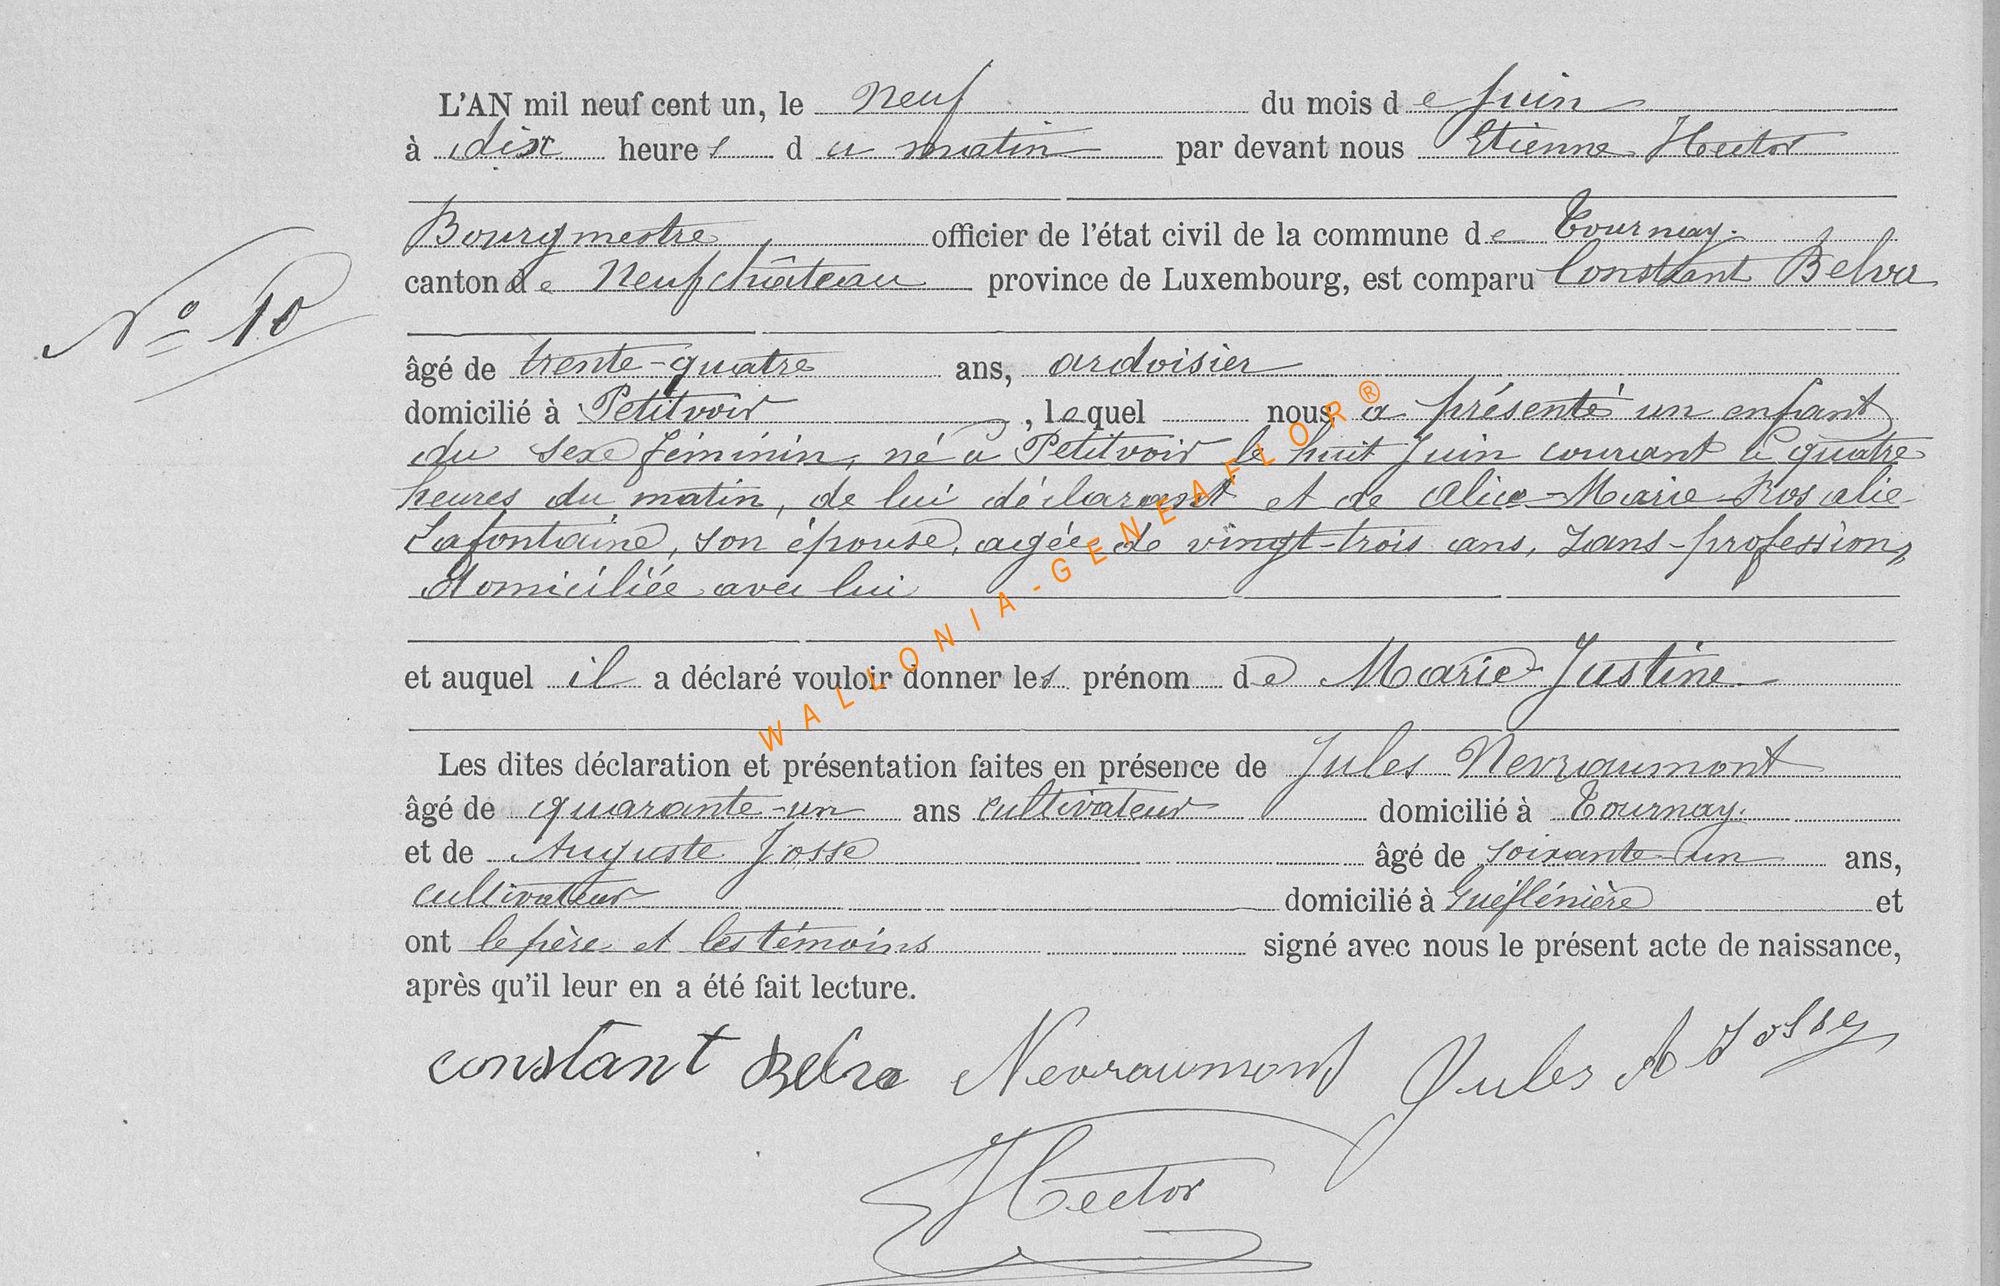 L'AN mil neuf cent un, le neuf du mois de Juin
à dix heures du matin par devant nous Etienne Hector
Bourgmestre, officier de l'état civil de la commune de Tournay.
canton de Neufchâteau province de Luxembourg, est comparu Constant Belva
N° 10
âgé de trente-quatre ans, ardoisier
domicilié à Petitvoir, lequel nous a présenté un enfant
du sexe féminin, né à Petitvoir le huit Juin courant à quatre
heures du matin, de lui déclarant et de Alice-Marie-Rosalie
Lafontaine, son épouse, agée de vingt-trois ans, sans-profession,
domiciliée avec lui
et auquel il a déclaré vouloir donner les prénom de Marie-Justine
Les dites déclaration et présentation faites en présence de Jules Nevraumont
âgé de quarante-un ans cultivateur domicilié à Tournay.
et de Auguste Josse âgé de soixante-un ans,
cultivateur domicilié à et
ont le père et les témoins signé avec nous le présent acte de naissance,
après qu'il leur en a été fait lecture.
constant Belva Nevraumont Jules A Josse
Hector
WALLONIA-GENEAFLOR®